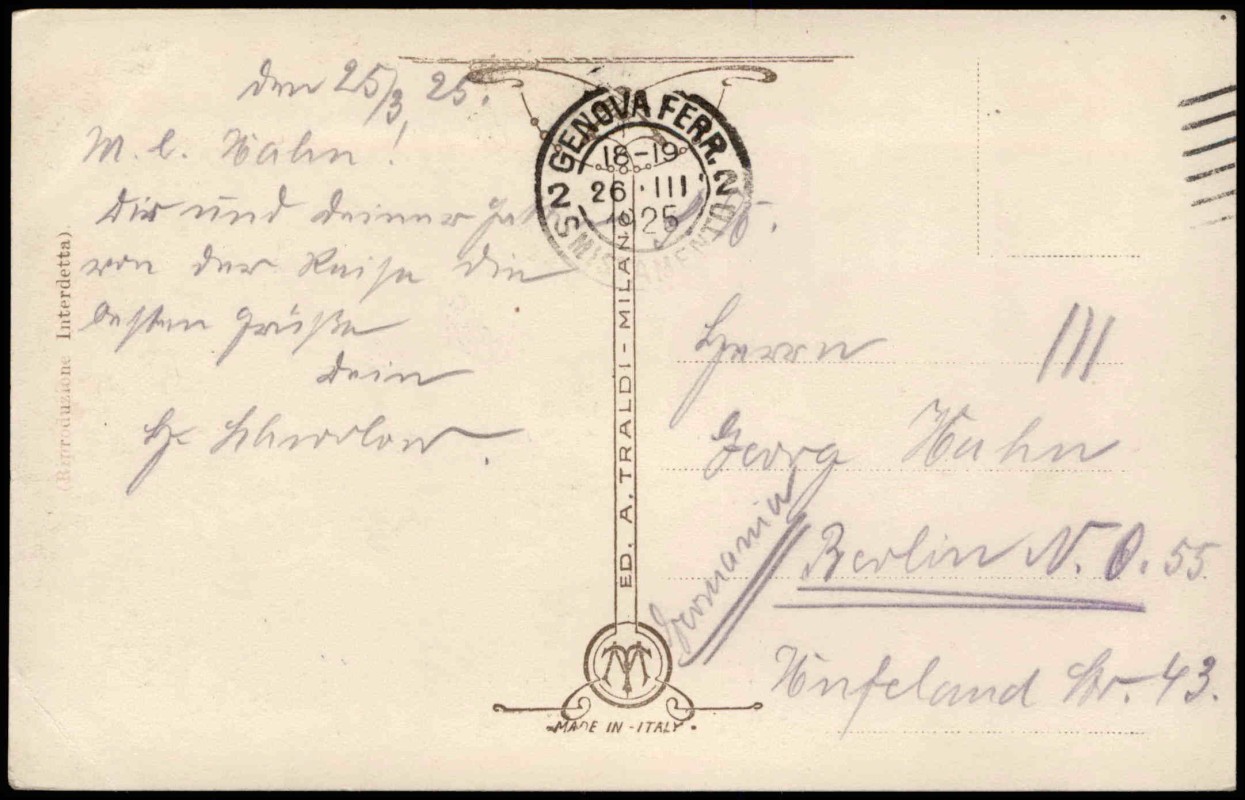 den 25/3 25.
M. l. Hahn!
Dir und deiner
von der Reise die
besten Grüße
Dein
(Riproduzione Interdetta).
GENOVA FERR. 2
18-19
26·III
1925
2 SMISTAMENTO
ED. A. TRALDI - MILANO
MADE IN - ITALY
Herrn III
Georg Hahn
Germania
Berlin N. O. 55
Hufeland Str. 43.